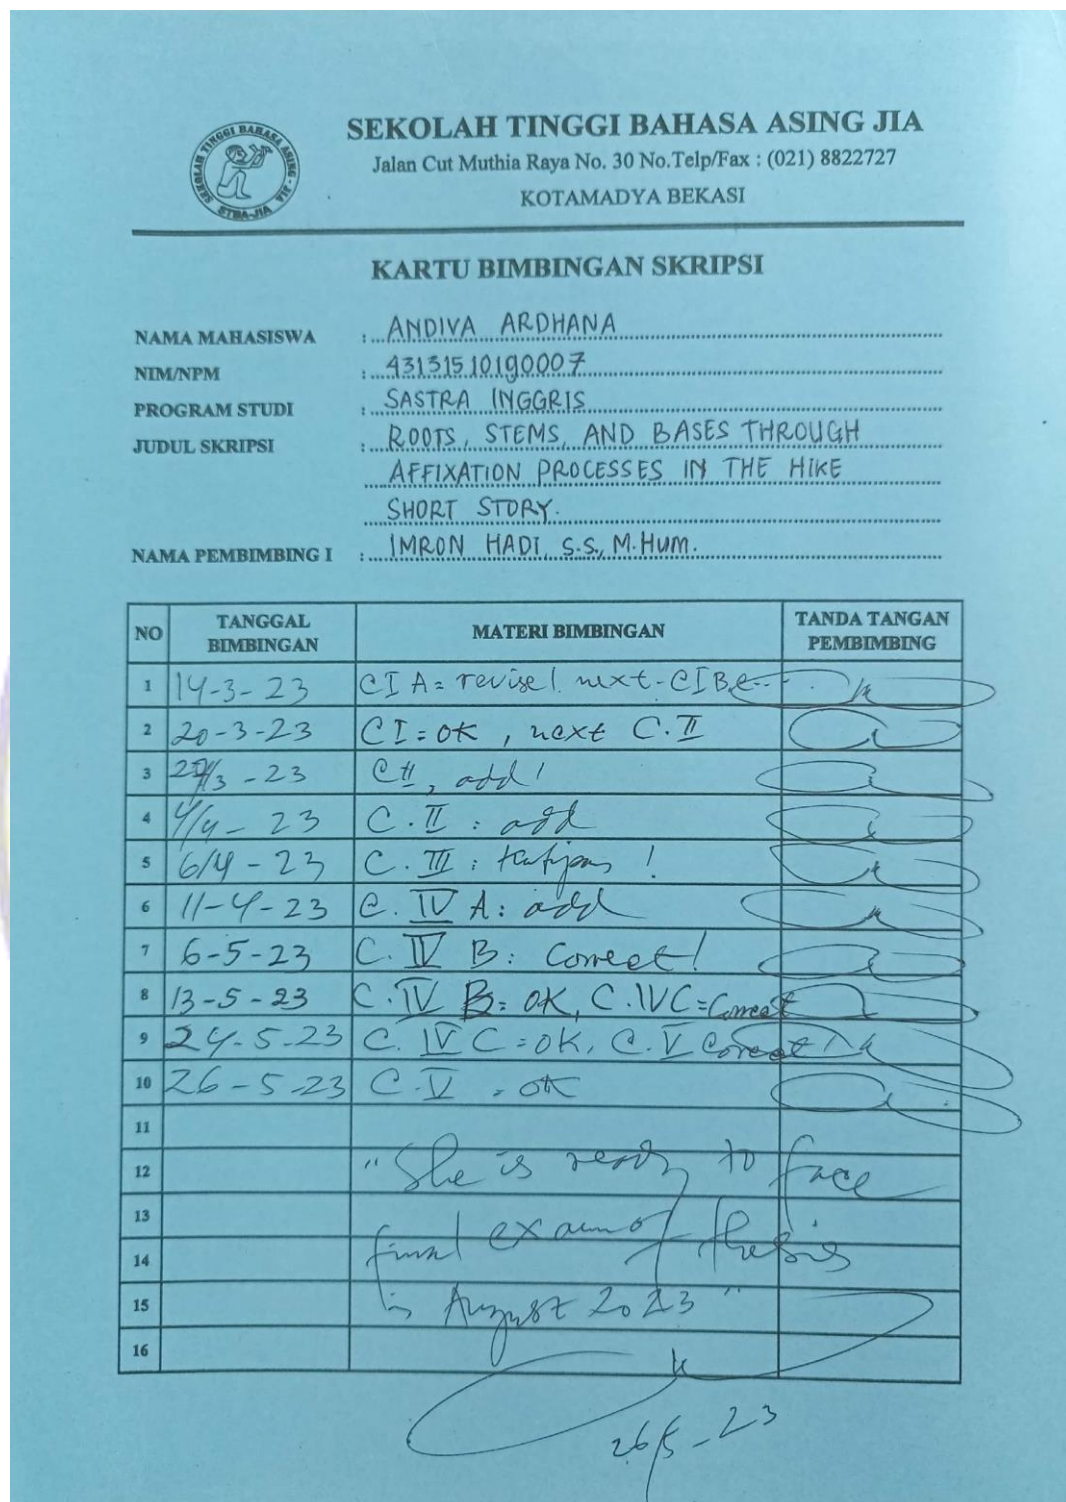 SEKOLAH TINGGI BAHASA ASING JIA
SEKOLAH TINGGI BAHASA ASING - JIA
STBA-JIA
Jalan Cut Muthia Raya No. 30 No.Telp/Fax : (021) 8822727
KOTAMADYA BEKASI
KARTU BIMBINGAN SKRIPSI
NAMA MAHASISWA : ANDIVA ARDHANA
NIM/NPM : 43131510190007
PROGRAM STUDI : SASTRA INGGRIS
JUDUL SKRIPSI : ROOTS, STEMS, AND BASES THROUGH
AFFIXATION PROCESSES IN THE HIKE
SHORT STORY.
NAMA PEMBIMBING I : IMRON HADI, S.S., M.Hum.
NO TANGGAL BIMBINGAN MATERI BIMBINGAN TANDA TANGAN PEMBIMBING
1 14-3-23 C I A = revise! next - C I B
2 20-3-23 C I = OK, next C. II
3 /3 - 23 C II, add!
4 4/4 - 23 C. II : add
5 6/4 - 23 C. III : !
6 11-4-23 C. IV A : add
7 6-5-23 C. IV B : Correct!
8 13-5-23 C. IV B = OK, C. IV C = Correct
9 24-5-23 C. IV C = OK, C. V Correct!
10 26-5-23 C. V = OK
11
12 "She is ready to face
13
14 final exam of thesis
15 in August 2023"
16
26/5 - 23